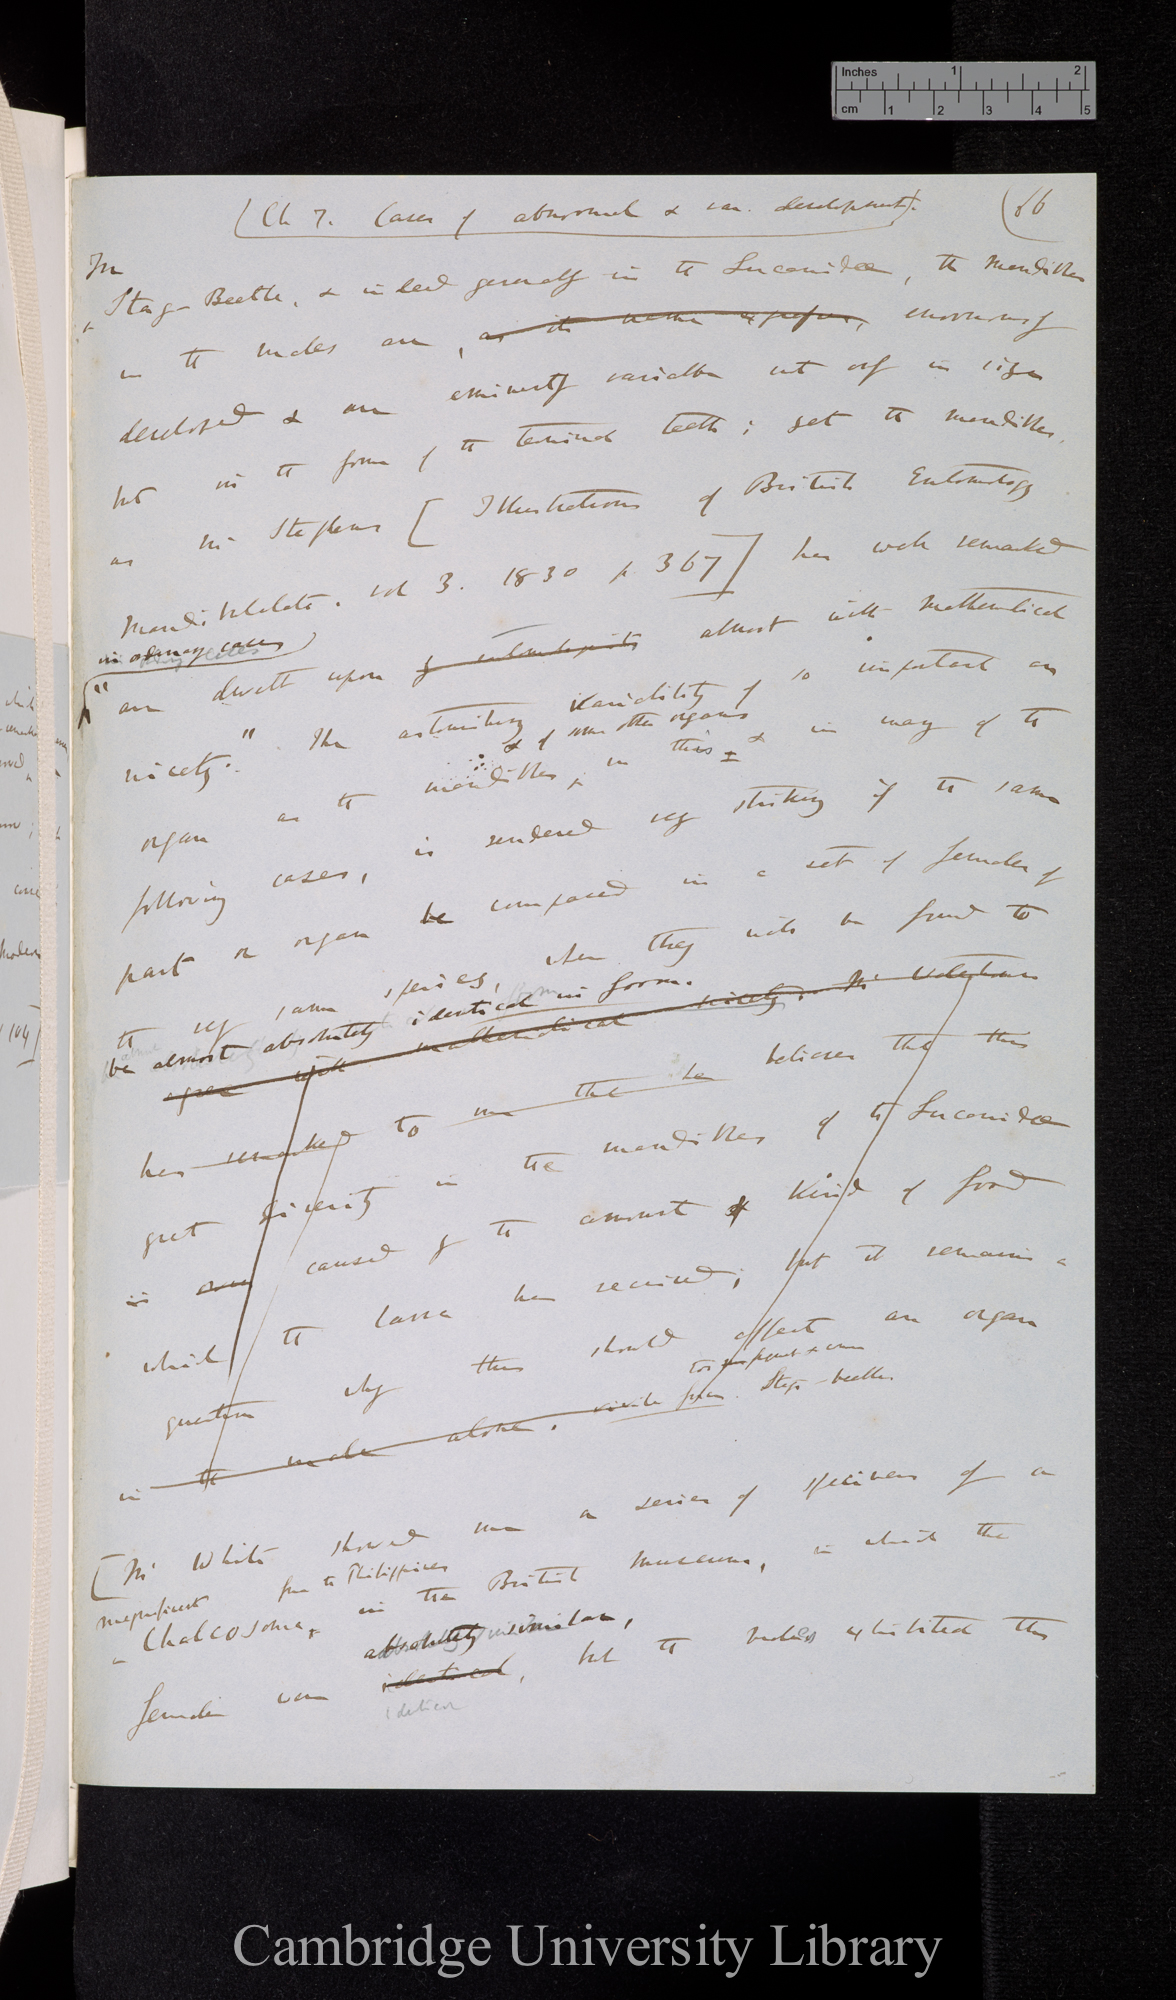 Inches 1 2
cm 1 2 3 4 5
(Ch 7. Cases of abnormal & var. development). (66
In
Stag-Beetle, & indeed generally in the Lucanidæ, the mandibles
in the males are, as the name expresses, enormously
developed & are eminently variable not only in size
but in the form of the terminal teeth; yet the mandibles,
as Mr Stephens [Illustrations of British Entomology
Mandibulata. vol 3. 1830 p. 367] has well remarked
in ordinary cases
"are dwelt upon by entomologists almost with mathematical
nicety." The astonishing variability of so important an
& of some other organs
organ as the mandibles, in this & in many of the
following cases, is rendered very striking if the same
part or organ be compared in a set of females of
the very same species, when they will be found to
be almost absolutely identical in form.
agree with mathematical nicety. Mr
has remarked to me that he believes that this
great diversity in the mandibles of the Lucanidæ
is caused by the amount & kind of food
which the larva has received; but it remains a
question why this should affect an organ
in the male alone.
Stag-beetles
[Mr White showed me a series of specimens of a
magnificent from the Philippines
Chalcosoma, in the British Museum, in which the
absolutely similar,
females were identical, but the males exhibited this
identical
Cambridge University Library